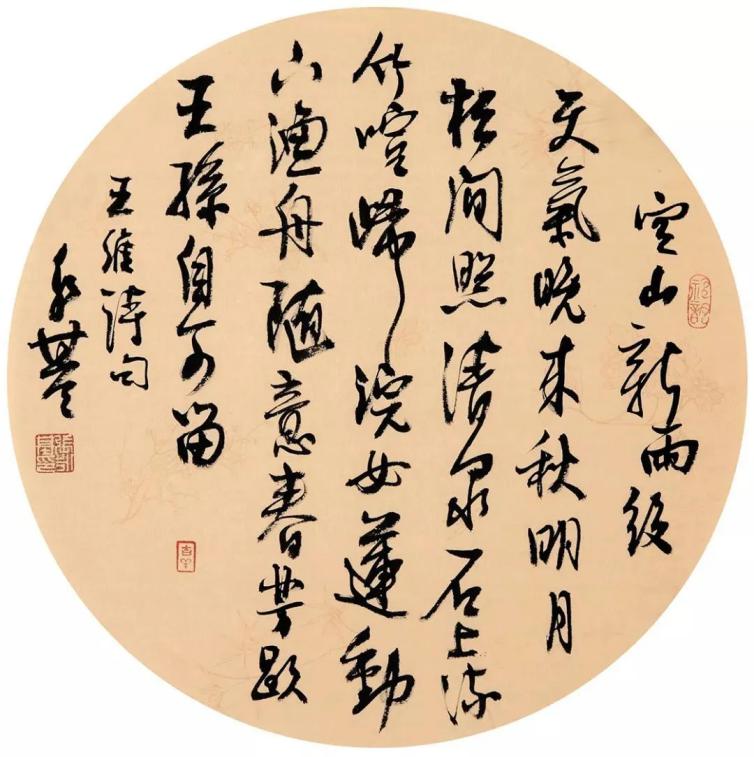 空山新雨後
天氣晚来秋明月
松間照清泉石上流
竹喧歸浣女蓮動
下漁舟随意春芳歇
王孫自可留
王維詩句